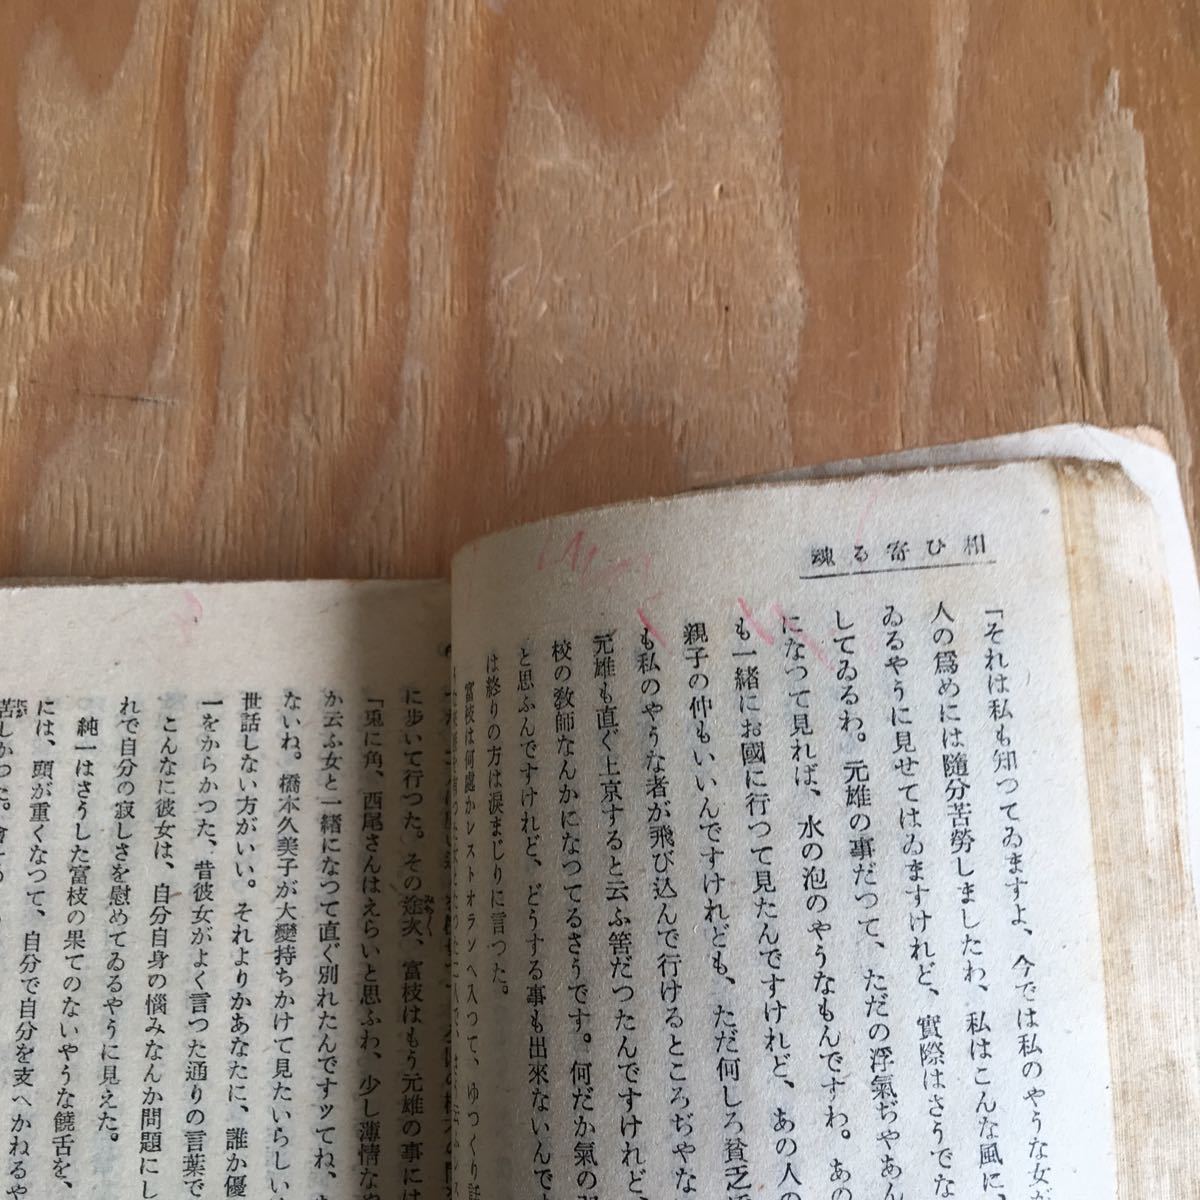 相ひ寄る魂
「それは私も知つてゐますよ、今では私のやうな女が
人の爲めには隨分苦勞しましたわ、私はこんな風に、
ゐるやうに見せてはゐますけれど、實際はさうでな
してゐるわ。元雄の事だつて、ただの浮氣ぢやあん
になつて見れば、水の泡のやうなもんですわ。あの
も一緒にお國に行つて見たんですけれど、あの人の
親子の仲もいいんですけれども、ただ何しろ貧乏
も私のやうな者が飛び込んで行けるところぢやな
元雄も直ぐ上京すると云ふ筈だつたんですけれど、
校の敎師なんかになつてるさうです。何だか氣の
と思ふんですけれど、どうする事も出來ないんで
は終りの方は淚まじりに言つた。
富枝は何處かレストオランへ入つて、ゆつくり話
に歩いて行つた。その途次、富枝はもう元雄の事には
みちみち
「兎に角、西尾さんはえらいと思ふわ、少し薄情なや
か云ふ女と一緒になつて直ぐ別れたんですツてね、
ないね。橋本久美子が大變持ちかけて見たいらしい
世話しない方がいい。それよりかあなたに、誰か優
一をからかつた、昔彼女がよく言つた通りの言葉で
こんなに彼女は、自分自身の惱みなんか問題にし
れで自分の寂しさを慰めてゐるやうに見えた。
純一はさうした富枝の果てのないやうな饒舌を、
には、頭が重くなつて、自分で自分を支へかねるや
苦しかつた。